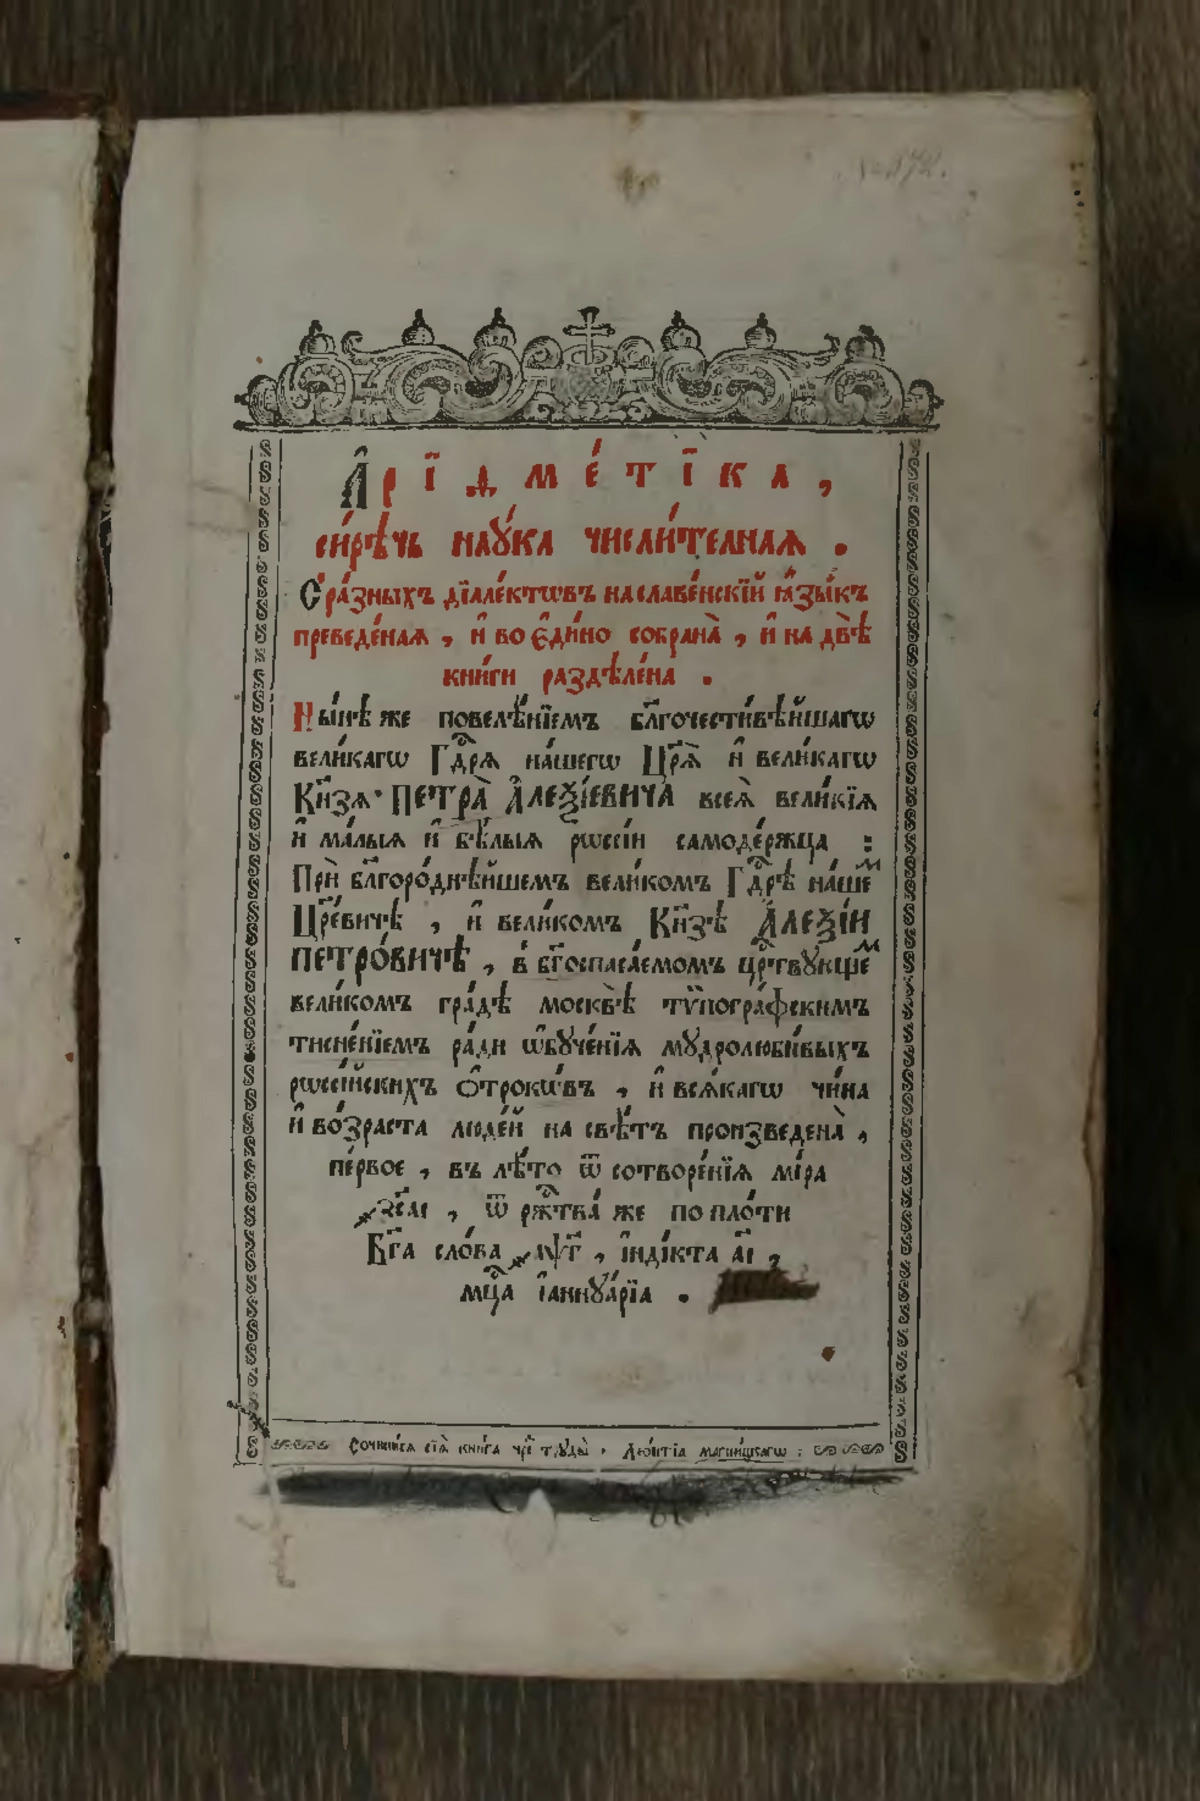 А҆рїѳме́тїка,
си́рѣчь наꙋ́ка числи́телнаѧ.
С̾ра́зныхъ дїале́ктѡвъ на славе́нскїй ꙗ҆зы́къ
преведе́наѧ, и҆ во є҆ди́но собрана̀, и҆ на двѣ̀
кни́ги раздѣле́на.
Ны́нѣ же повелѣ́нїемъ бл҃гочести́вѣйшагѡ
вели́кагѡ Гдⷭ҇рѧ на́шегѡ Цр҃ѧ̀ и҆ вели́кагѡ
Кн҃зѧ ПЕТРА̀ А҆ЛЕѮІ́ЕВИЧА всеѧ̀ вели́кїѧ
и҆ ма́лыѧ и҆ бѣ́лыѧ рѡссі́и самоде́ржца :
Прѝ бл҃горо́днѣйшемъ вели́комъ Гдⷭ҇рѣ на́шеⷨ
Цр҃е́вичѣ, и҆ вели́комъ Кн҃зѣ А҆ЛЕѮІ́И
ПЕТРО́ВИЧѢ, в̾ бг҃оспаса́емомъ црⷭ҇твꙋющеⷨ
вели́комъ гра́дѣ москвѣ̀ тѷпогра́фскимъ
тисне́нїемъ ра́ди ѡ҆бꙋче́нїѧ мꙋдролюби́выхъ
рѡссі́йскихъ ѻ҆́трокѡвъ, и҆ всѧ́кагѡ чи́на
и҆ во́зраста люде́й на свѣ́тъ произведена̀,
пе́рвое, въ лѣ́то ѿ сотворе́нїѧ мі́ра
҂зс҃аі, ѿ ржⷭ҇тва́ же по пло́ти
Бг҃а сло́ва ҂аѱг҃, і҆нді́кта а҃і,
мцⷭ҇а і҆аннꙋа́рїа.
Сочини́сѧ сїѧ̀ кни́га чре́з трꙋды̀ Леѻ́нтїа магни́цкагѡ :